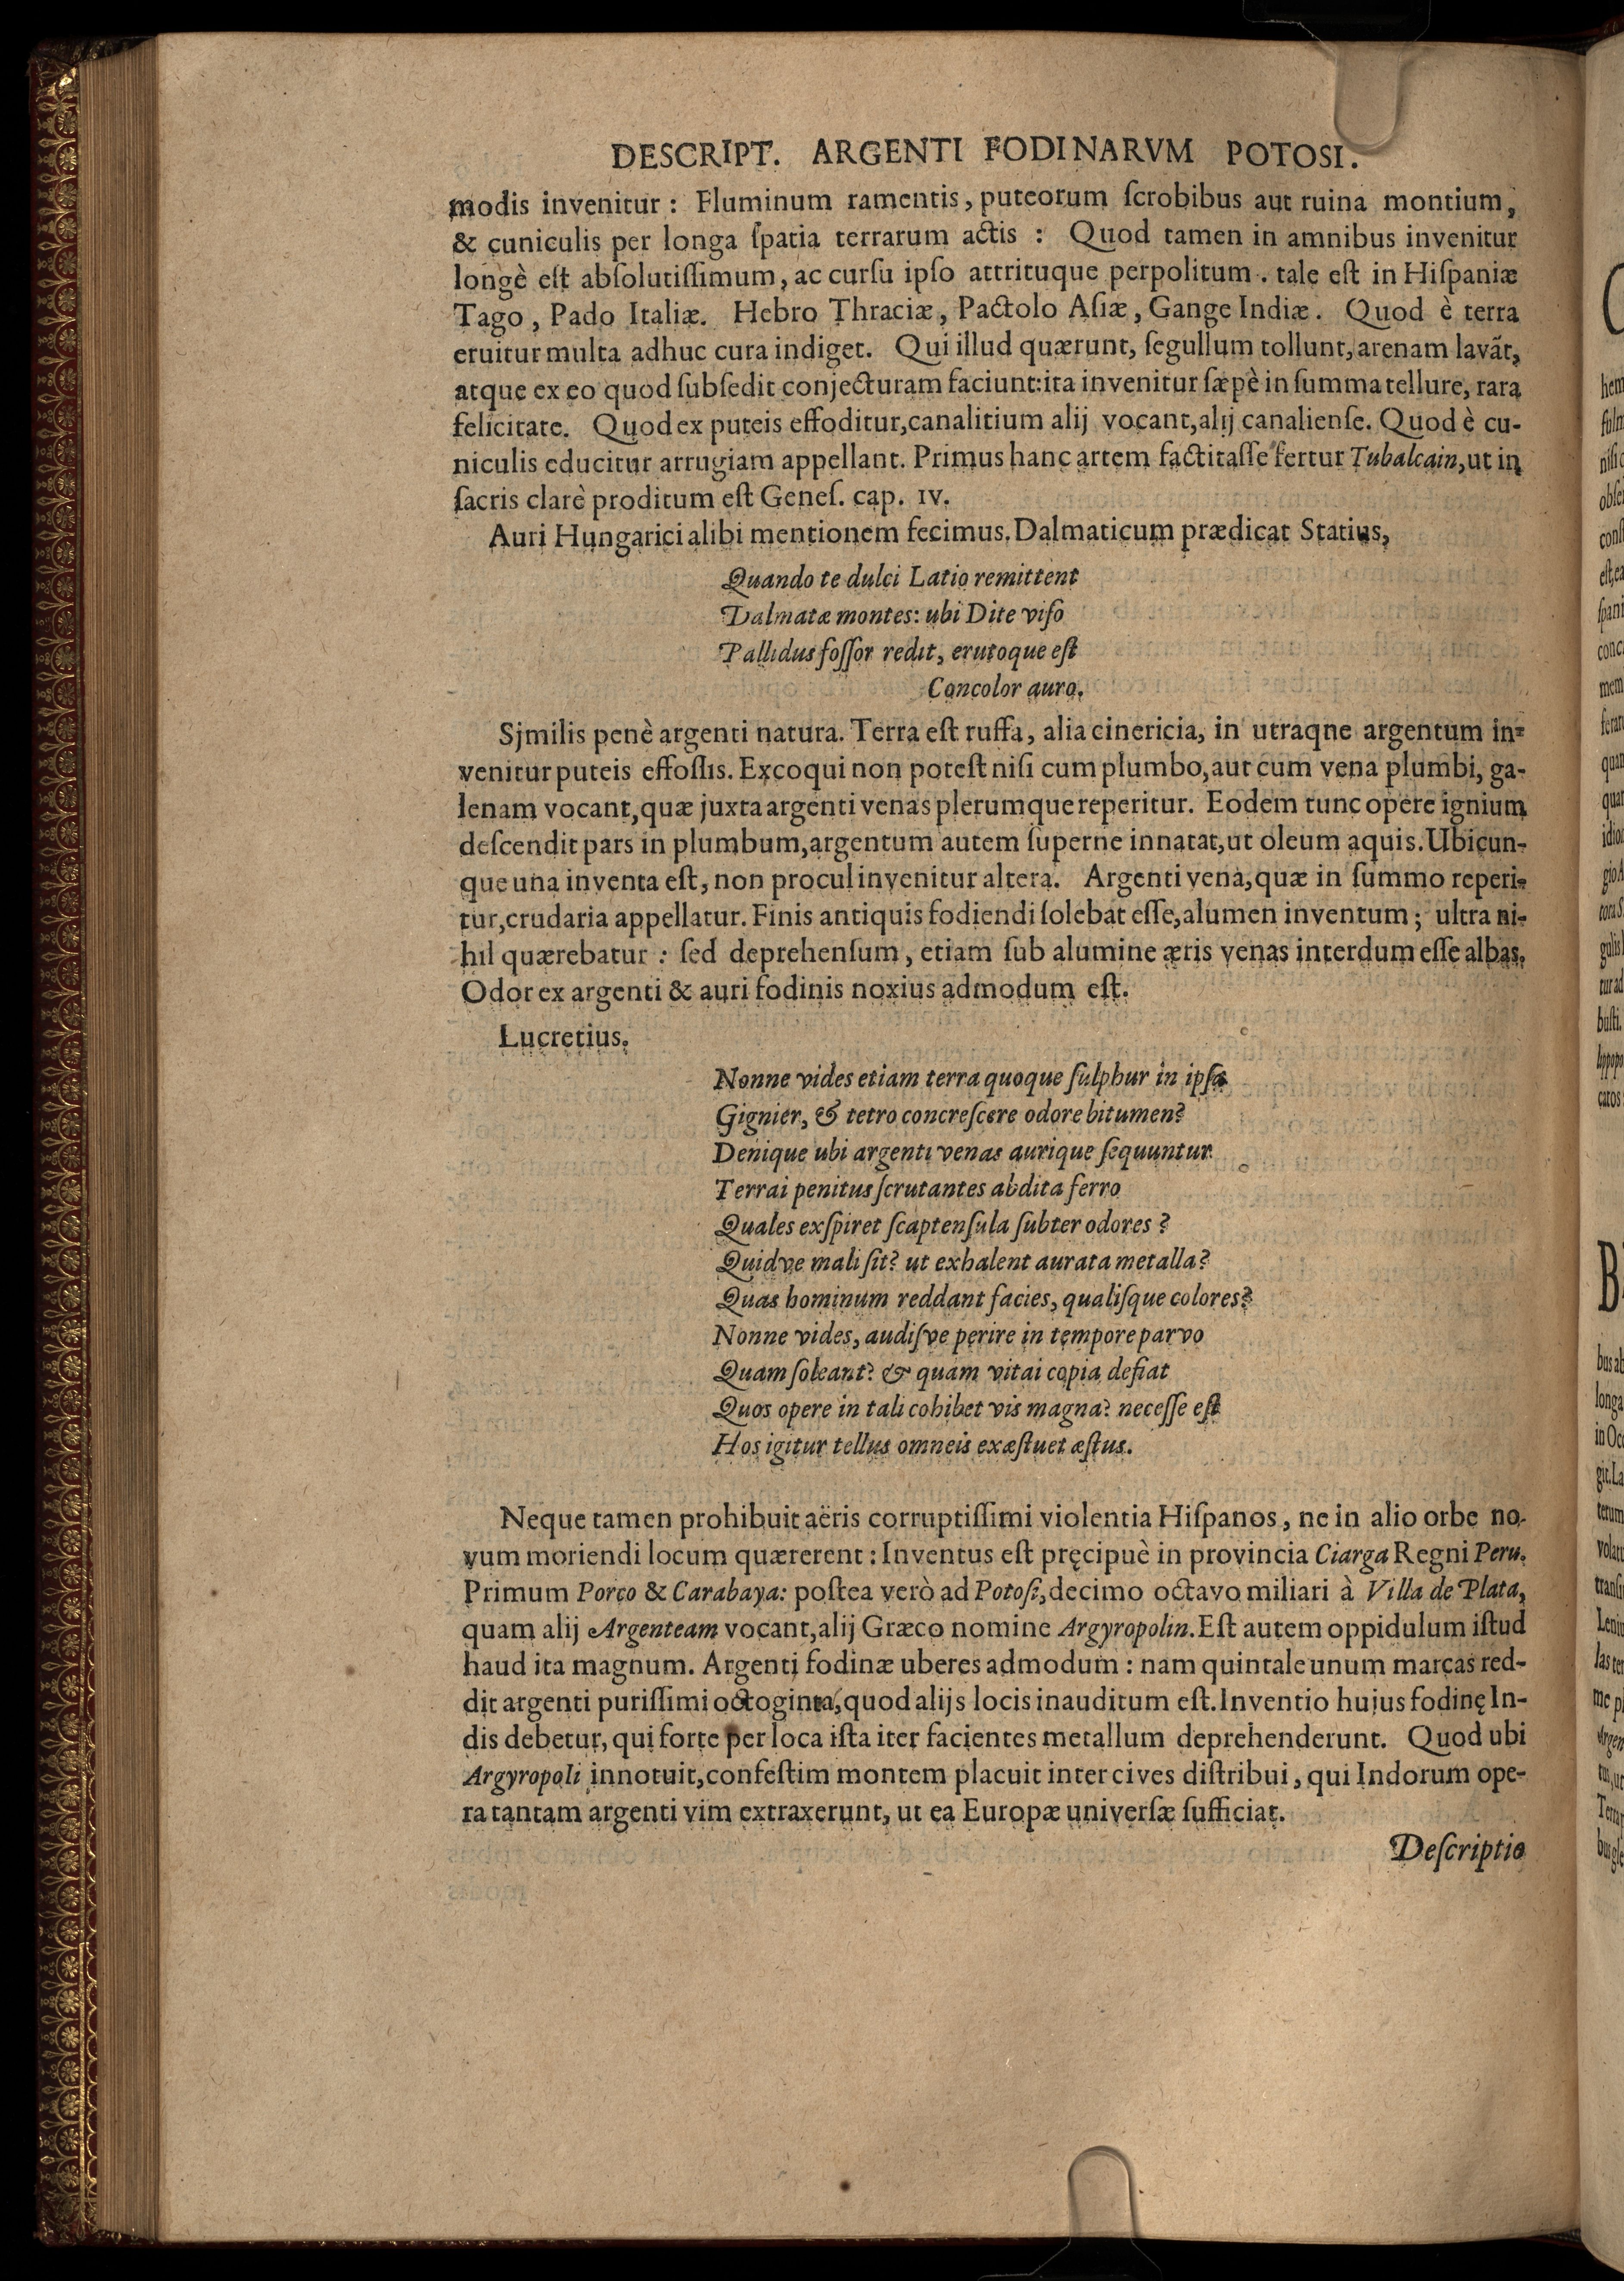 DESCRIPT. ARGENTI FODINARVM POTOSI.
modis invenitur : Fluminum ramentis, puteorum ſcrobibus aut ruina montium,
& cuniculis per longa ſpatia terrarum actis : Quod tamen in amnibus invenitur
longè eſt abſolutiſſimum, ac curſu ipſo attrituque perpolitum. tale eſt in Hiſpaniæ
Tago, Pado Italiæ. Hebro Thraciæ, Pactolo Aſiæ, Gange Indiæ. Quod è terra
eruitur multa adhuc cura indiget. Qui illud quærunt, ſegullum tollunt, arenam lavāt,
atque ex eo quod ſubſedit conjecturam faciunt: ita invenitur ſæpè in ſumma tellure, rara
felicitate. Quod ex puteis effoditur, canalitium alij vocant, alij canalienſe. Quod è cu-
niculis educitur arrugiam appellant. Primus hanc artem factitaſſe fertur Tubalcain, ut in
ſacris clarè proditum eſt Geneſ. cap. IV.
Auri Hungarici alibi mentionem fecimus. Dalmaticum prædicat Statius,
Quando te dulci Latio remittent
Dalmatæ montes: ubi Dite viſo
Pallidus foſſor redit, erutoque eſt
Concolor auro.
Sjmilis penè argenti natura. Terra eſt ruffa, alia cinericia, in utraqne argentum in-
venitur puteis effoſſis. Excoqui non poteſt niſi cum plumbo, aut cum vena plumbi, ga-
lenam vocant, quæ juxta argenti venas plerumque reperitur. Eodem tunc opere ignium
deſcendit pars in plumbum, argentum autem ſuperne innatat, ut oleum aquis. Ubicun-
que una inventa eſt, non procul invenitur altera. Argenti vena, quæ in ſummo reperi-
tur, crudaria appellatur. Finis antiquis fodiendi ſolebat eſſe, alumen inventum; ultra ni-
hil quærebatur : ſed deprehenſum, etiam ſub alumine æris venas interdum eſſe albas.
Odor ex argenti & auri fodinis noxius admodum eſt.
Lucretius.
Nonne vides etiam terra quoque ſulphur in ipſa
Gignier, & tetro concreſcere odore bitumen?
Denique ubi argenti venas aurique ſequuntur
Terrai penitus ſcrutantes abdita ferro
Quales exſpiret ſcaptenſula ſubter odores ?
Quidve mali ſit? ut exhalent aurata metalla?
Quas hominum reddant facies, qualiſque colores?
Nonne vides, audiſve perire in tempore parvo
Quam ſoleant? & quam vitai copia defiat
Quos opere in tali cohibet vis magna? neceſſe eſt
Hos igitur tellus omneis exæſtuet æſtus.
Neque tamen prohibuit aëris corruptiſſimi violentia Hiſpanos, ne in alio orbe no-
vum moriendi locum quærerent : Inventus eſt pręcipuè in provincia Ciarga Regni Peru.
Primum Porco & Carabaya: poſtea verò ad Potoſi, decimo octavo miliari à Villa de Plata,
quam alij Argenteam vocant, alij Græco nomine Argyropolin. Eſt autem oppidulum iſtud
haud ita magnum. Argenti fodinæ uberes admodum : nam quintale unum marcas red-
dit argenti puriſſimi octoginta, quod alijs locis inauditum eſt. Inventio hujus fodinę In-
dis debetur, qui forte per loca iſta iter facientes metallum deprehenderunt. Quod ubi
Argyropoli innotuit, confeſtim montem placuit inter cives diſtribui, qui Indorum ope-
ra tantam argenti vim extraxerunt, ut ea Europæ univerſæ ſufficiat.
Deſcriptio